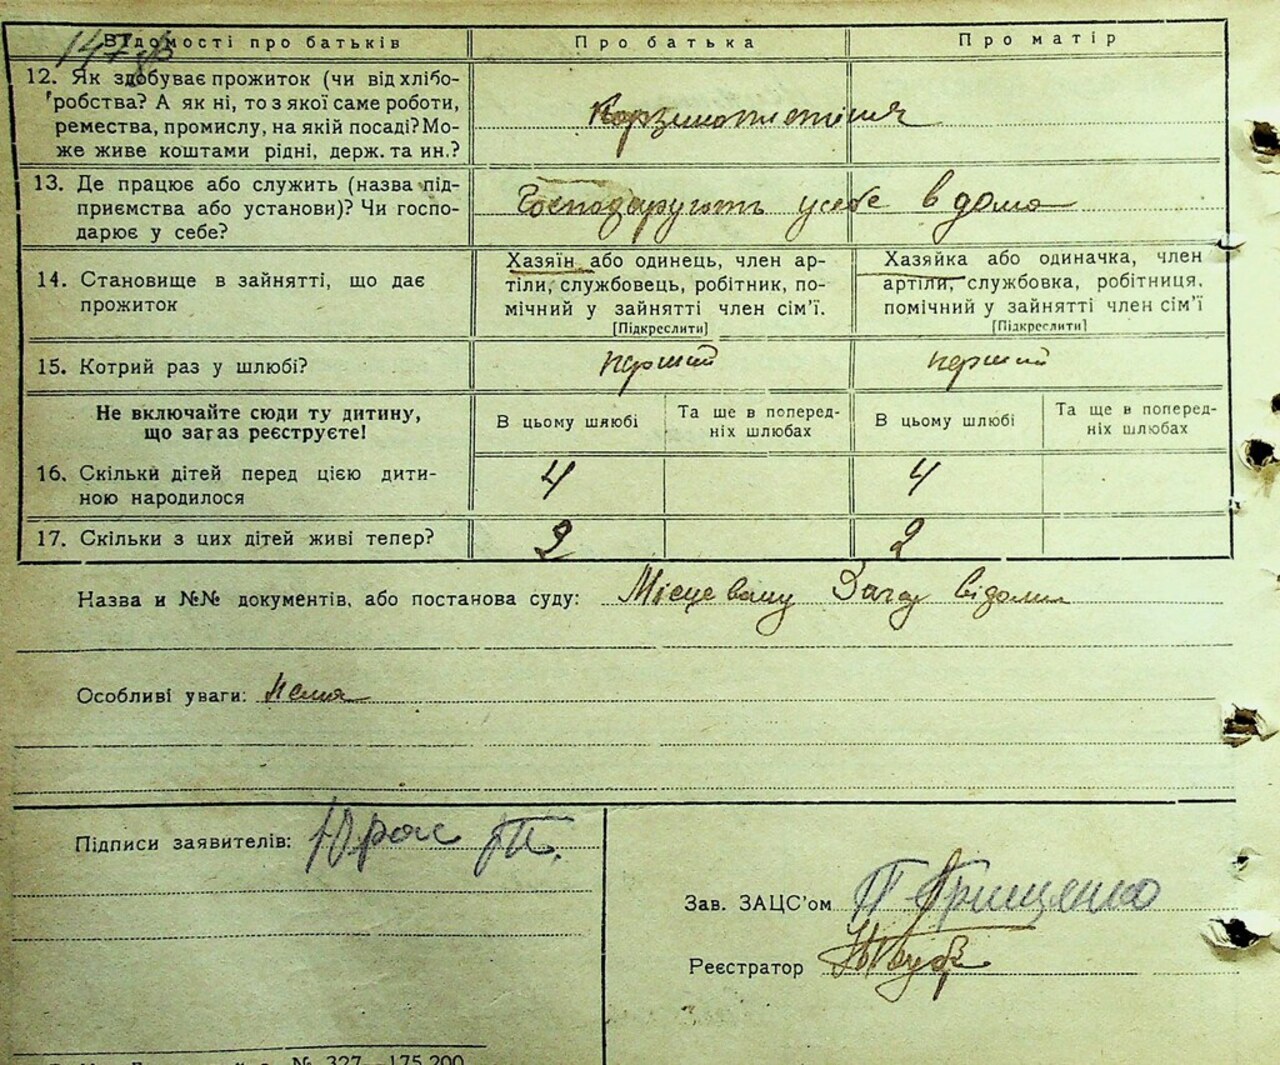 147
Відомості про батьків Про батька Про матір
12. Як здобуває прожиток (чи від хлібо-
робства? А як ні, то з якої саме роботи,
ремества, промислу, на якій посаді? Мо-
же живе коштами рідні, держ. та ин.?
Корзиноплетіння
13. Де працює або служить (назва під-
приємства або установи)? Чи госпо-
дарює у себе?
Господарують у себе в дома
14. Становище в зайнятті, що дає
прожиток
Хазяїн або одинець, член ар-
тіли, службовець, робітник, по-
мічний у зайнятті член сім'ї.
[Підкреслити]
Хазяйка або одиначка, член
артіли, службовка, робітниця,
помічний у зайнятті член сім'ї
[Підкреслити]
15. Котрий раз у шлюбі? перший перший
Не включайте сюди ту дитину,
що зараз реєструєте!
В цьому шлюбі
Та ще в поперед-
ніх шлюбах
В цьому шлюбі
Та ще в поперед-
ніх шлюбах
16. Скільки дітей перед цією дити-
ною народилося
4 4
17. Скільки з цих дітей живі тепер? 2 2
Назва и №№ документів, або постанова суду: Місцевому Загсу відоми
Особливі уваги: нема
Підписи заявителів: Юрас П.
Зав. ЗАЦС'ом П Грищенко
Реєстратор
№ 327—175.200